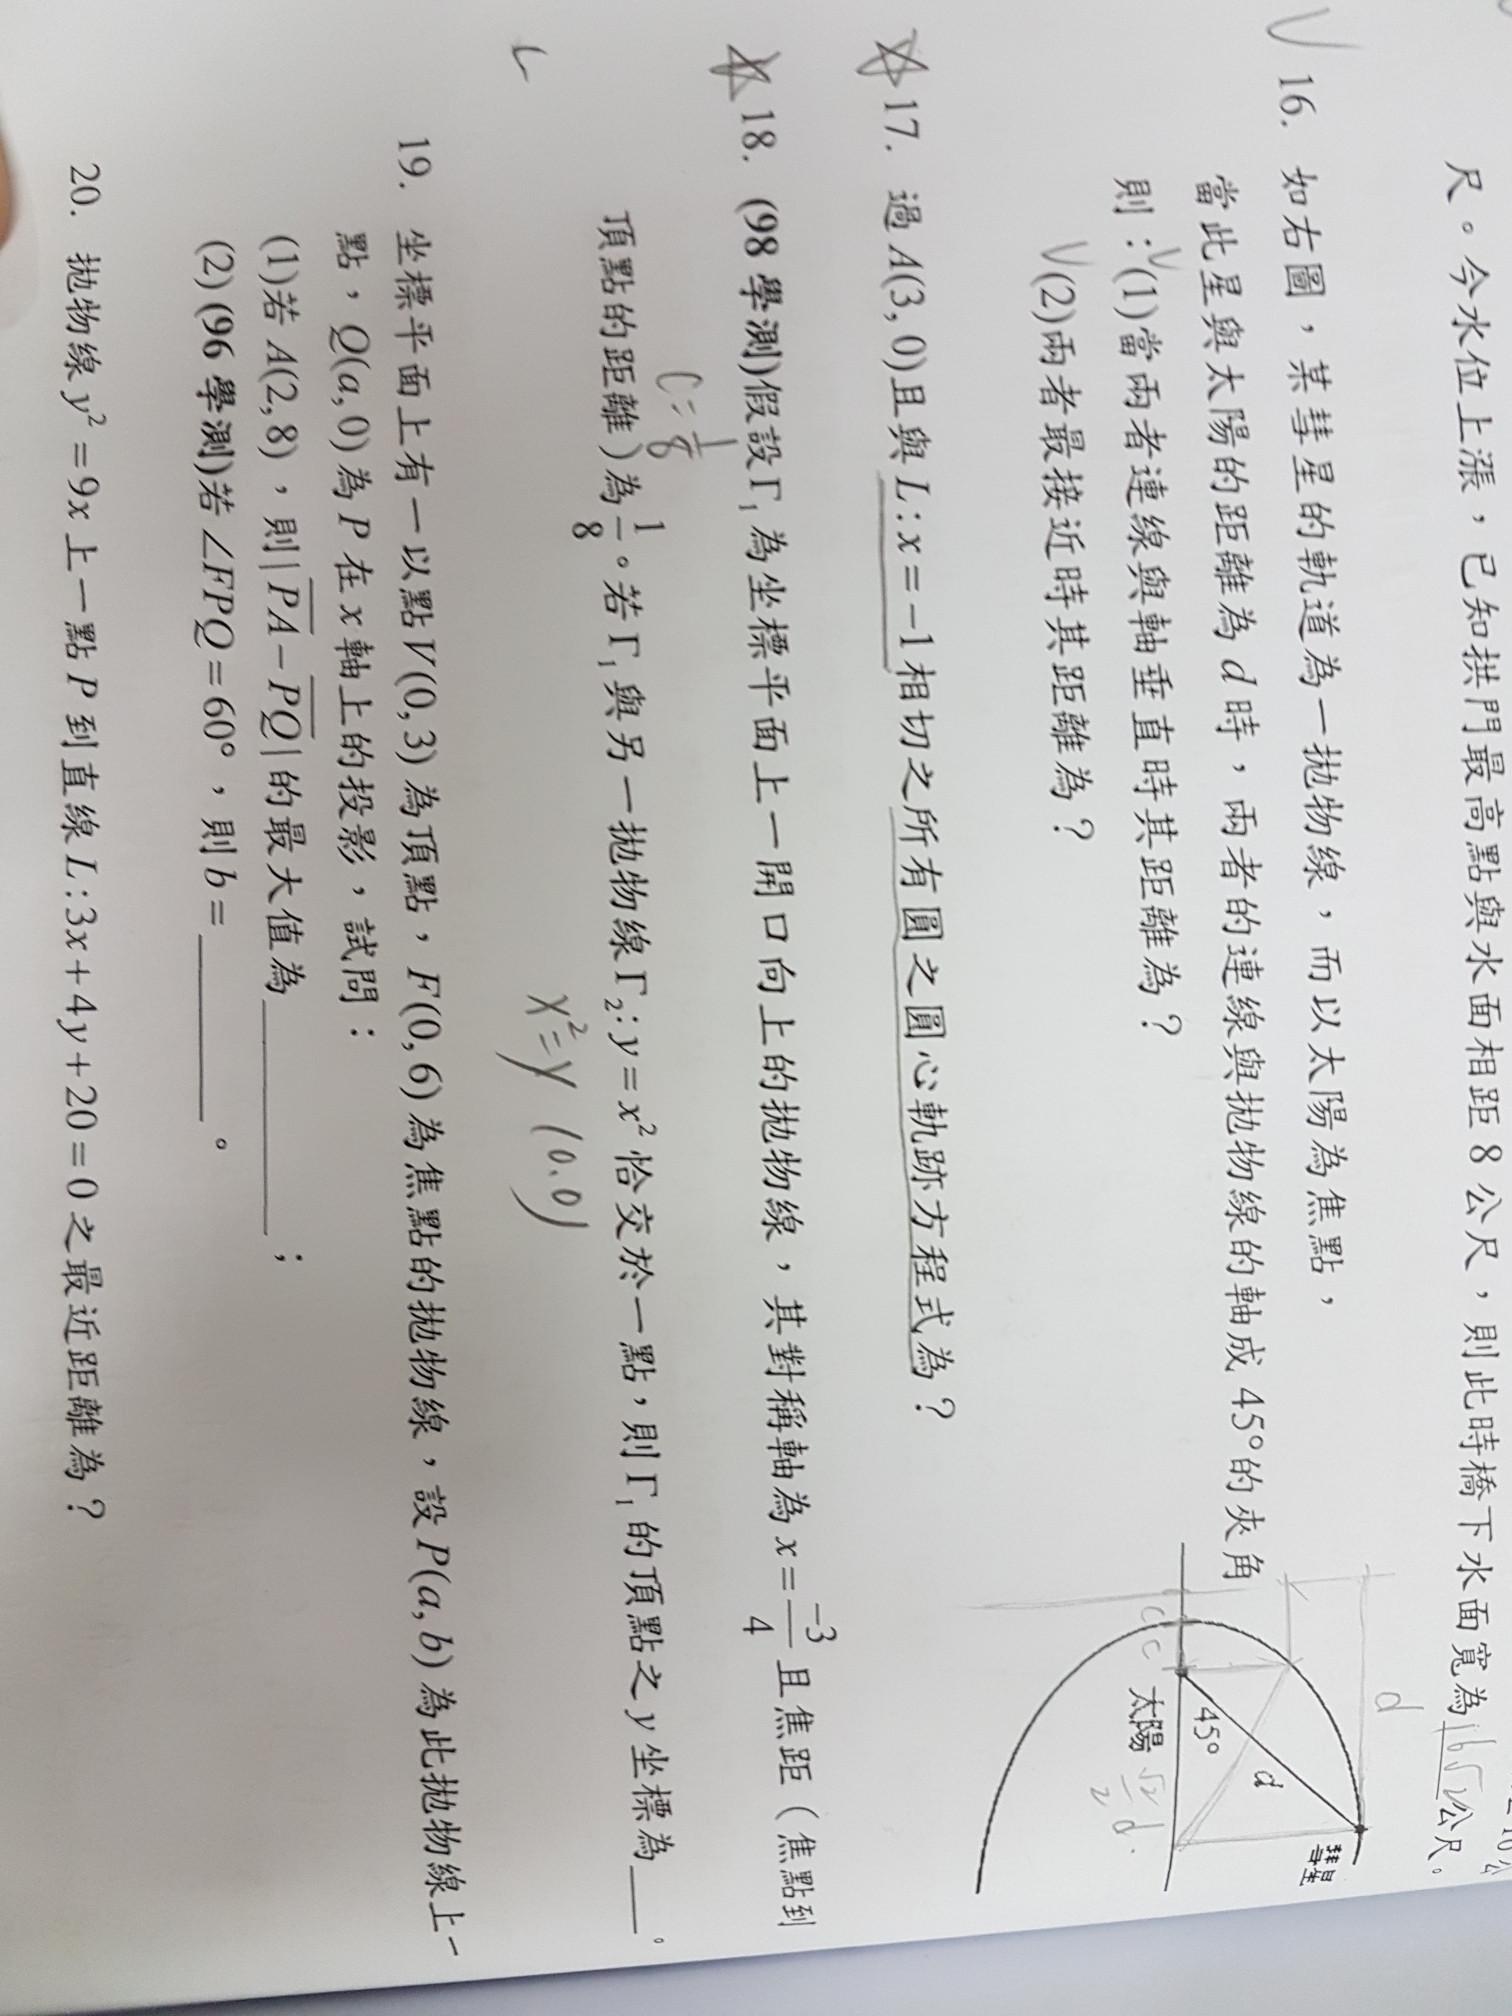 尺。今水位上漲，已知拱門最高點與水面相距 8 公尺，則此時橋下水面寬為16√2公尺。
16. 如右圖，某彗星的軌道為一拋物線，而以太陽為焦點，
當此星與太陽的距離為 d 時，兩者的連線與拋物線的軸成 45°的夾角
則：(1)當兩者連線與軸垂直時其距離為？
(2)兩者最接近時其距離為？
d
彗星
d
45°
太陽
c c
√2/2 d
17. 過 A(3,0)且與 L:x=-1 相切之所有圓之圓心軌跡方程式為？
18. (98 學測)假設Γ₁為坐標平面上一開口向上的拋物線，其對稱軸為 x=-3/4 且焦距（焦點到
c=1/8
頂點的距離）為1/8。若Γ₁與另一拋物線Γ₂:y=x²恰交於一點，則Γ₁的頂點之 y 坐標為____。
x²=y (0.0)
19. 坐標平面上有一以點 V(0,3)為頂點，F(0,6)為焦點的拋物線，設 P(a,b)為此拋物線上一
點，Q(a,0)為 P 在 x 軸上的投影，試問：
(1)若 A(2,8)，則|PA-PQ|的最大值為________；
(2)(96 學測)若∠FPQ=60°，則 b=________。
20. 拋物線 y²=9x 上一點 P 到直線 L:3x+4y+20=0 之最近距離為？